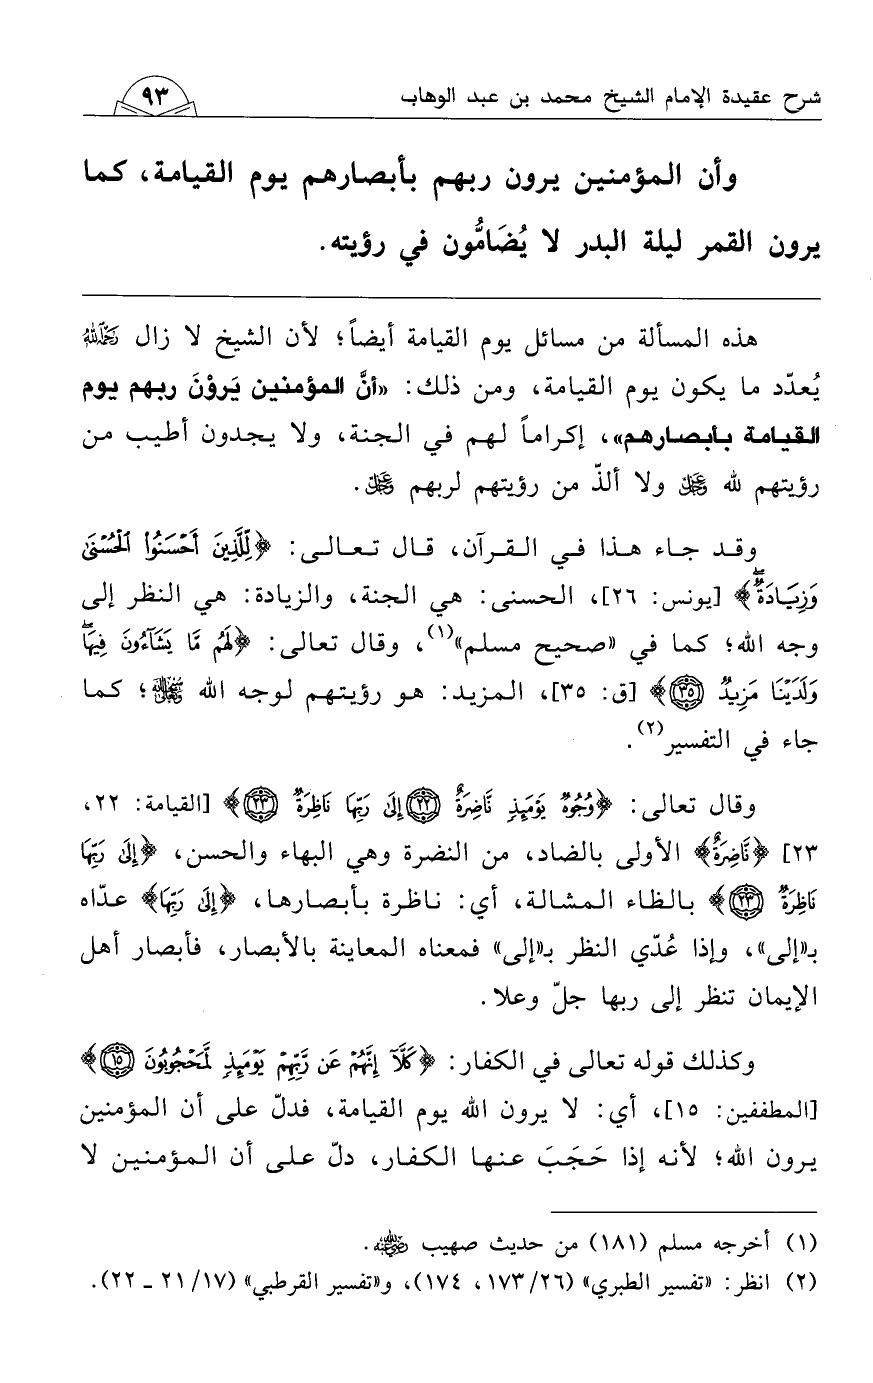 شرح عقيدة الإمام الشيخ محمد بن عبد الوهاب ٩٣
وأن المؤمنين يرون ربهم بأبصارهم يوم القيامة، كما
يرون القمر ليلة البدر لا يُضَامُّون في رؤيته.
هذه المسألة من مسائل يوم القيامة أيضاً؛ لأن الشيخ لا زال رَحِمَهُ اللهُ
يُعدّد ما يكون يوم القيامة، ومن ذلك: «أنَّ المؤمنين يَروْنَ ربهم يوم
القيامة بأبصارهم»، إكراماً لهم في الجنة، ولا يجدون أطيب من
رؤيتهم لله ﷿ ولا ألذّ من رؤيتهم لربهم ﷿.
وقد جاء هذا في القرآن، قال تعالى: ﴿لِّلَّذِينَ أَحْسَنُوا۟ ٱلْحُسْنَىٰ
وَزِيَادَةٌۖ﴾ [يونس: ٢٦]، الحسنى: هي الجنة، والزيادة: هي النظر إلى
وجه الله؛ كما في «صحيح مسلم»(١)، وقال تعالى: ﴿لَهُم مَّا يَشَآءُونَ فِيهَاۖ
وَلَدَيْنَا مَزِيدٌ ٣٥﴾ [ق: ٣٥]، المزيد: هو رؤيتهم لوجه الله ﷾؛ كما
جاء في التفسير(٢).
وقال تعالى: ﴿وُجُوهٌ يَوْمَئِذٍ نَّاضِرَةٌ ٢٢ إِلَىٰ رَبِّهَا نَاظِرَةٌ ٢٣﴾ [القيامة: ٢٢،
٢٣] ﴿نَّاضِرَةٌ﴾ الأولى بالضاد، من النضرة وهي البهاء والحسن، ﴿إِلَىٰ رَبِّهَا
نَاظِرَةٌ ٢٣﴾ بالظاء المشالة، أي: ناظرة بأبصارها، ﴿إِلَىٰ رَبِّهَا﴾ عدّاه
بـ«إلى»، وإذا عُدّي النظر بـ«إلى» فمعناه المعاينة بالأبصار، فأبصار أهل
الإيمان تنظر إلى ربها جلّ وعلا.
وكذلك قوله تعالى في الكفار: ﴿كَلَّآ إِنَّهُمْ عَن رَّبِّهِمْ يَوْمَئِذٍ لَّمَحْجُوبُونَ ١٥﴾
[المطففين: ١٥]، أي: لا يرون الله يوم القيامة، فدلّ على أن المؤمنين
يرون الله؛ لأنه إذا حَجَبَ عنها الكفار، دلّ على أن المؤمنين لا
(١) أخرجه مسلم (١٨١) من حديث صهيب رضي الله عنه.
(٢) انظر: «تفسير الطبري» (١٧٣/٢٦، ١٧٤)، و«تفسير القرطبي» (٢١/١٧ ـ ٢٢).